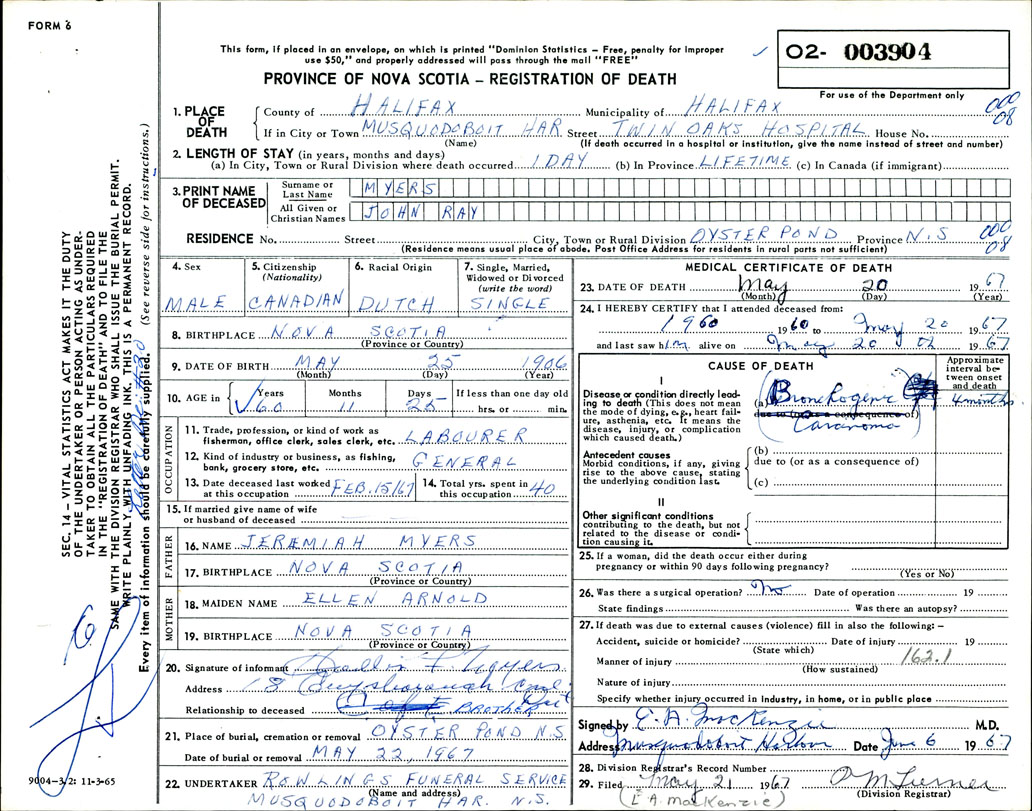 FORM 6
This form, if placed in an envelope, on which is printed "Dominion Statistics – Free, penalty for improper
use $50," and properly addressed will pass through the mail "FREE"
PROVINCE OF NOVA SCOTIA – REGISTRATION OF DEATH
02- 003904
For use of the Department only
000
08
1. PLACE OF DEATH
County of HALIFAX Municipality of HALIFAX
If in City or Town MUSQUODOBOIT HAR. Street TWIN OAKS HOSPITAL House No.
(Name) (If death occurred in a hospital or institution, give the name instead of street and number)
2. LENGTH OF STAY (in years, months and days)
(a) In City, Town or Rural Division where death occurred 1 DAY (b) In Province LIFETIME (c) In Canada (if immigrant)
3. PRINT NAME OF DECEASED
Surname or Last Name MYERS
All Given or Christian Names JOHN RAY
RESIDENCE No. Street City, Town or Rural Division OYSTER POND Province N.S
000
08
(Residence means usual place of abode. Post Office Address for residents in rural parts not sufficient)
4. Sex MALE
5. Citizenship (Nationality) CANADIAN
6. Racial Origin DUTCH
7. Single, Married, Widowed or Divorced (write the word) SINGLE
8. BIRTHPLACE NOVA SCOTIA
(Province or Country)
9. DATE OF BIRTH MAY 25 1906
(Month) (Day) (Year)
10. AGE in Years 60 Months 11 Days 25 If less than one day old hrs. or min.
OCCUPATION
11. Trade, profession, or kind of work as
fisherman, office clerk, sales clerk, etc. LABOURER
12. Kind of industry or business, as fishing,
bank, grocery store, etc. GENERAL
13. Date deceased last worked at this occupation FEB. 15/67
14. Total yrs. spent in this occupation 40
15. If married give name of wife
or husband of deceased
FATHER
16. NAME JEREMIAH MYERS
17. BIRTHPLACE NOVA SCOTIA
(Province or Country)
MOTHER
18. MAIDEN NAME ELLEN ARNOLD
19. BIRTHPLACE NOVA SCOTIA
(Province or Country)
20. Signature of informant Myers
Address 18
Relationship to deceased BROTHER
21. Place of burial, cremation or removal OYSTER POND N.S.
Date of burial or removal MAY 22, 1967
22. UNDERTAKER ROWLINGS FUNERAL SERVICE
(Name and address)
MUSQUODOBOIT HAR. N.S.
MEDICAL CERTIFICATE OF DEATH
23. DATE OF DEATH May 20 1967
(Month) (Day) (Year)
24. I HEREBY CERTIFY that I attended deceased from:
1960 1960 to May 20 1967
and last saw him alive on May 20th 1967
CAUSE OF DEATH
Approximate interval between onset and death
I
Disease or condition directly leading to death (This does not mean the mode of dying, e.g., heart failure, asthenia, etc. It means the disease, injury, or complication which caused death.)
(a) Bronchogenic 4 months
due to (or as a consequence of)
Carcinoma
Antecedent causes
Morbid conditions, if any, giving rise to the above cause, stating the underlying condition last.
(b)
due to (or as a consequence of)
(c)
II
Other significant conditions
contributing to the death, but not related to the disease or condition causing it.
25. If a woman, did the death occur either during
pregnancy or within 90 days following pregnancy?
(Yes or No)
26. Was there a surgical operation? No Date of operation 19
State findings Was there an autopsy?
27. If death was due to external causes (violence) fill in also the following: –
Accident, suicide or homicide? Date of injury 19
(State which)
Manner of injury 162.1
(How sustained)
Nature of injury
Specify whether injury occurred in industry, in home, or in public place
Signed by E. A. MacKenzie M.D.
Address Musquodoboit Harbour Date June 6 1967
28. Division Registrar's Record Number
29. Filed May 21 1967
(Division Registrar)
(E A. MacKenzie)
SEC. 14 – VITAL STATISTICS ACT MAKES IT THE DUTY
OF THE UNDERTAKER OR PERSON ACTING AS UNDER-
TAKER TO OBTAIN ALL THE PARTICULARS REQUIRED
IN THE "REGISTRATION OF DEATH" AND TO FILE THE
SAME WITH THE DIVISION REGISTRAR WHO SHALL ISSUE THE BURIAL PERMIT.
WRITE PLAINLY, WITH UNFADING INK. THIS IS A PERMANENT RECORD.
Every item of information should be carefully supplied. (See reverse side for instructions.)
9004-3/2: 11-3-65